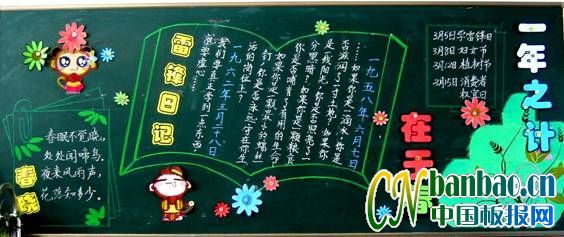 一年之计
在于
3月5日学雷锋日
3月8日妇女节
3月12日植树节
3月15日消费者
权益日
雷锋日记
一九五八年六月七日
……如果你是一滴水,你是
否滋润了一寸土地?如果你
是一线阳光,你是否照亮了一
分黑暗?如果你是一颗粮食
你是否哺育了有用的生命?
如果你是一颗最小的螺丝
钉,你是否永远坚守在你生
活的岗位上?
一九六二年三月二十八日
我们要真正学到一点东西
就要虚心
春晓
春眠不觉晓,
处处闻啼鸟。
夜来风雨声,
花落知多少。
CN banbao.cn
中国板报网